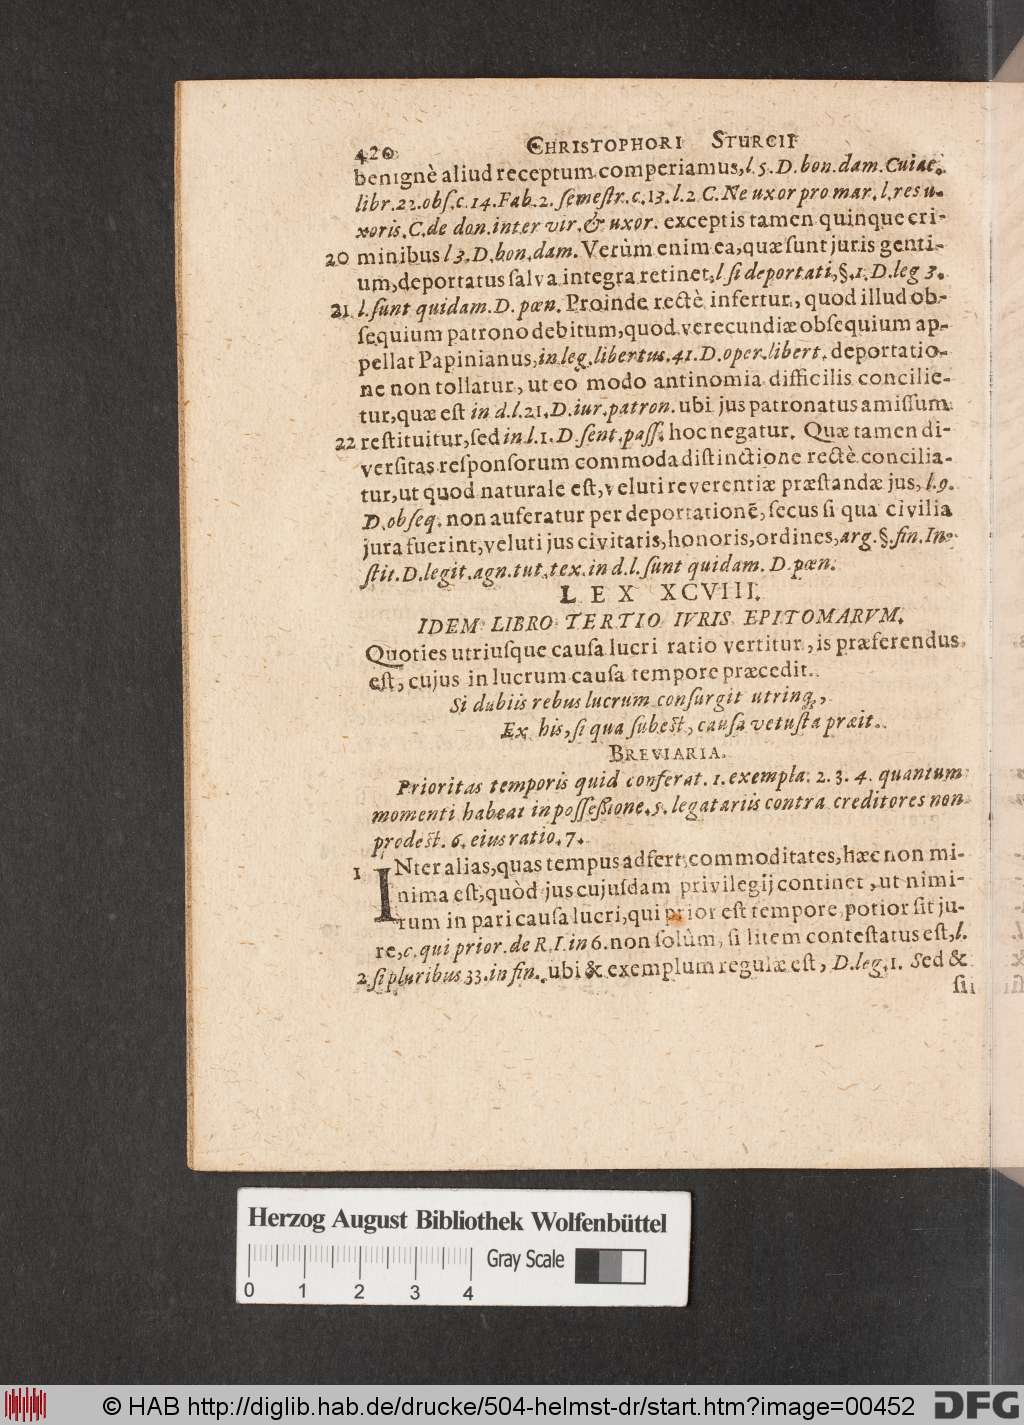 420 CHRISTOPHORI STURCII
benignè aliud receptum comperiamus, l. 5. D. bon. dam. Cuiac.
libr. 22. obſ. c. 14. Fab. 2. ſemeſtr. c. 13. l. 2 C. Ne uxor pro mar. l. res u-
xoris. C. de don. inter vir. & uxor. exceptis tamen quinque cri-
20 minibus l 3. D. bon. dam. Verùm enim ea, quæ ſunt juris genti-
um, deportatus ſalva integra retinet, l. ſi deportati, §. 1. D. leg 3.
21 l. ſunt quidam. D. pœn. Proinde rectè infertur, quod illud ob-
ſequium patrono debitum, quod verecundiæ obſequium ap-
pellat Papinianus, in leg. libertus. 41. D. oper. libert. deportatio-
ne non tollatur, ut eo modo antinomia difficilis concilie-
tur, quæ eſt in d. l. 21. D. iur. patron. ubi jus patronatus amiſſum
22 reſtituitur, ſed in l. 1. D. ſent. paſſ. hoc negatur. Quæ tamen di-
verſitas reſponſorum commoda diſtinctione rectè concilia-
tur, ut quod naturale eſt, veluti reverentiæ præſtandæ jus, l. 9.
D. obſeq. non auferatur per deportationē, ſecus ſi qua civilia
jura fuerint, veluti jus civitatis, honoris, ordines, arg. §. fin. In-
ſtit. D. legit. agn. tut. tex. in d. l. ſunt quidam. D. pœn.
LEX XCVIII.
IDEM LIBRO TERTIO IVRIS EPITOMARVM.
Quoties utriuſque cauſa lucri ratio vertitur, is præferendus
eſt, cujus in lucrum cauſa tempore præcedit.
Si dubiis rebus lucrum conſurgit utrinq;,
Ex his, ſi qua ſubeſt, cauſa vetuſta præit.
BREVIARIA.
Prioritas temporis quid conferat. 1. exempla. 2. 3. 4. quantum
momenti habeat in poſſeſſione. 5. legatariis contra creditores non
prodeſt. 6. eius ratio. 7.
1 INter alias, quas tempus adfert, commoditates, hæc non mi-
nima eſt, quòd jus cujuſdam privilegij continet, ut nimi-
rum in pari cauſa lucri, qui prior eſt tempore, potior ſit ju-
re, c. qui prior. de R. I. in 6. non ſolùm, ſi litem conteſtatus eſt, l.
2 ſi pluribus 33. in fin. ubi & exemplum regulæ eſt, D. leg. 1. Sed &
ſi
Herzog August Bibliothek Wolfenbüttel
Gray Scale
0 1 2 3 4
© HAB http://diglib.hab.de/drucke/504-helmst-dr/start.htm?image=00452
DFG